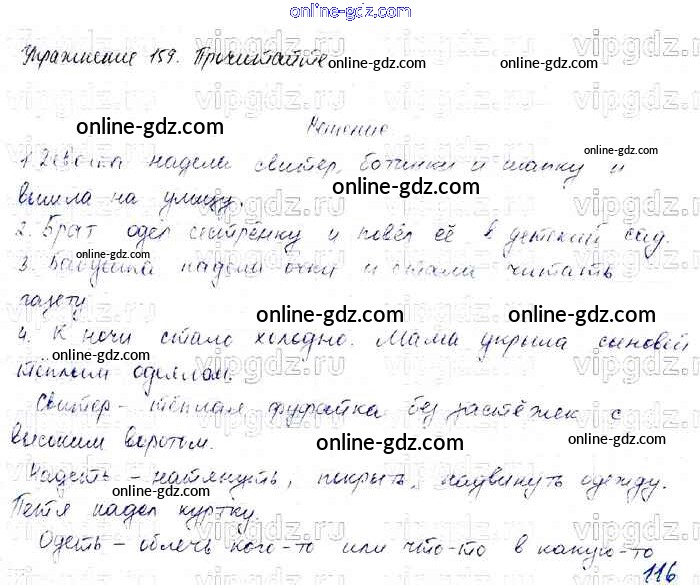 online-gdz.com
Упражнение 159. Прочитайте
online-gdz.com online-gdz.com
Решение
online-gdz.com online-gdz.com
надела свитер, ботинки и шапку и
вышла на улицу.
online-gdz.com
2. Брат одел сестрёнку и повёл её в детский сад.
online-gdz.com online-gdz.com
3. Бабушка надела очки и стала читать
газету
online-gdz.com online-gdz.com
4. К ночи стало холодно. Мама укрыла сыновей
тёплым одеялом.
online-gdz.com online-gdz.com
Свитер - тёплая фуфайка без застёжек с
высоким воротом.
online-gdz.com
Надеть - натянуть, покрыть, надвинуть одежду.
online-gdz.com online-gdz.com
Петя надел куртку.
Одеть - облечь кого-то или что-то в какую-то
116